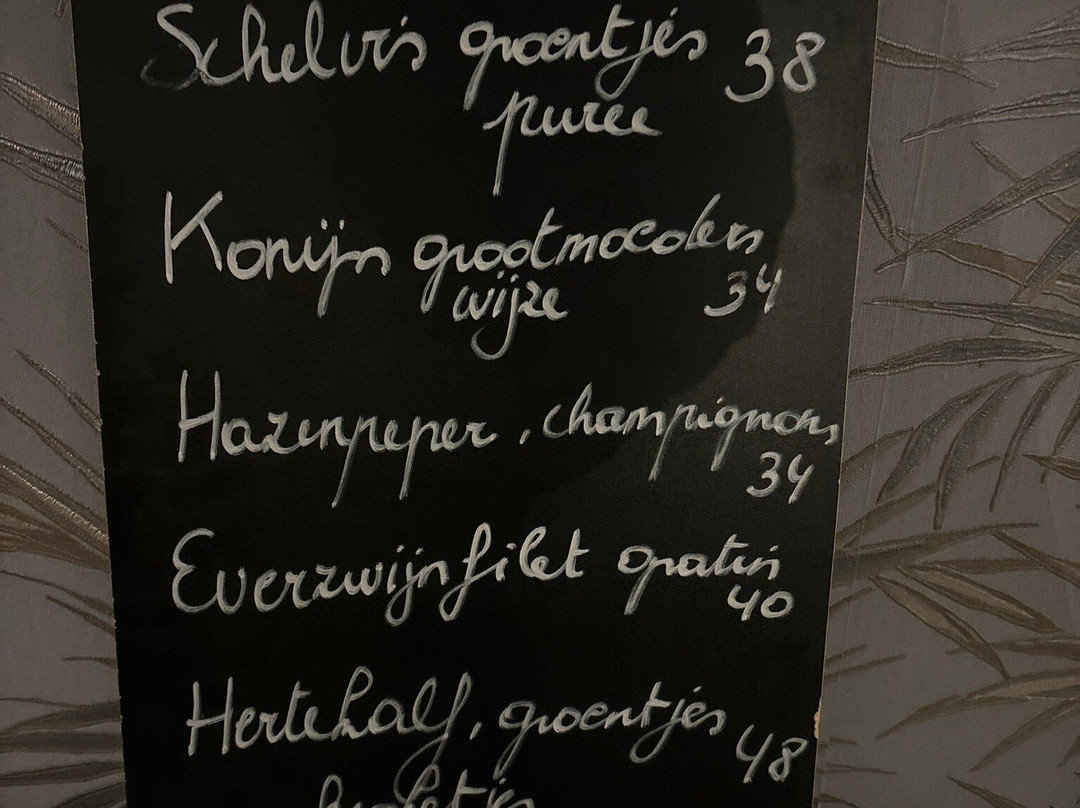 Schelvis groentjes 38
puree
Konijn grootmoeders
wijze 34
Hazenpeper, champignons
34
Everzwijnfilet gratin
40
Hertekalf, groentjes
48